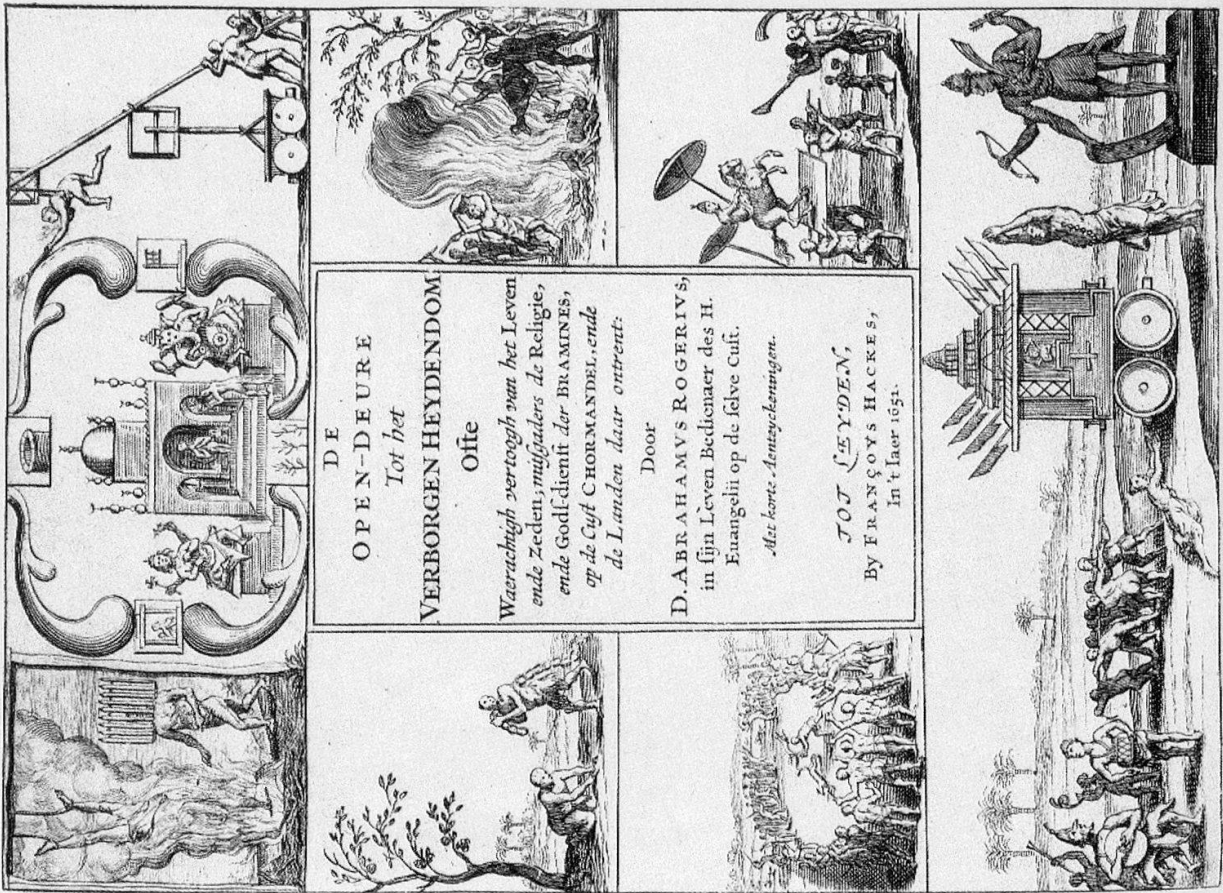 DE
OPEN-DEURE
Tot het
VERBORGEN HEYDENDOM
Ofte
Waerachtigh vertoogh van het Leven
ende Zeden; mitsgaders de Religie,
ende Godsdienst der BRAMINES,
op de Cust CHORMANDEL, ende
de Landen daar ontrent:
Door
D. ABRAHAMVS ROGERIVS,
in sijn Leven Bedienaer des H.
Euangelii op de selve Cust.
Met korte Aenteyckeningen.
TOT LEYDEN,
By FRANÇOYS HACKES,
In 't Iaer 1651.